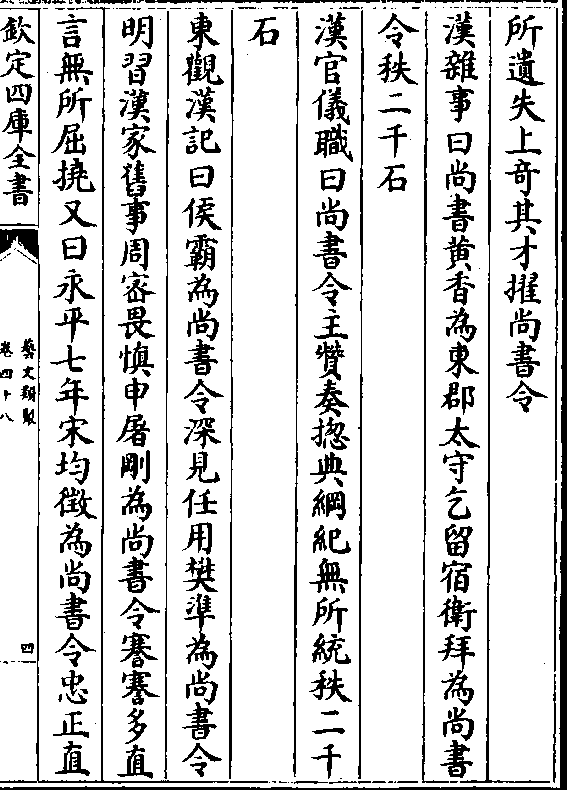 所遺失上竒其才擢尚書令
漢雜事曰尚書黄香為東郡太守乞留宿衛拜為尚書
令秩二千石
漢官儀職曰尚書令主贊奏揔典綱紀無所統秩二千
石
東觀漢記曰侯霸為尚書令深見任用樊準為尚書令
明習漢家舊事周宻畏慎申屠剛為尚書令謇謇多直
言無所屈撓又曰永平七年宋均徴為尚書令忠正直
欽定四庫全書
藝文類聚
卷四十八
四